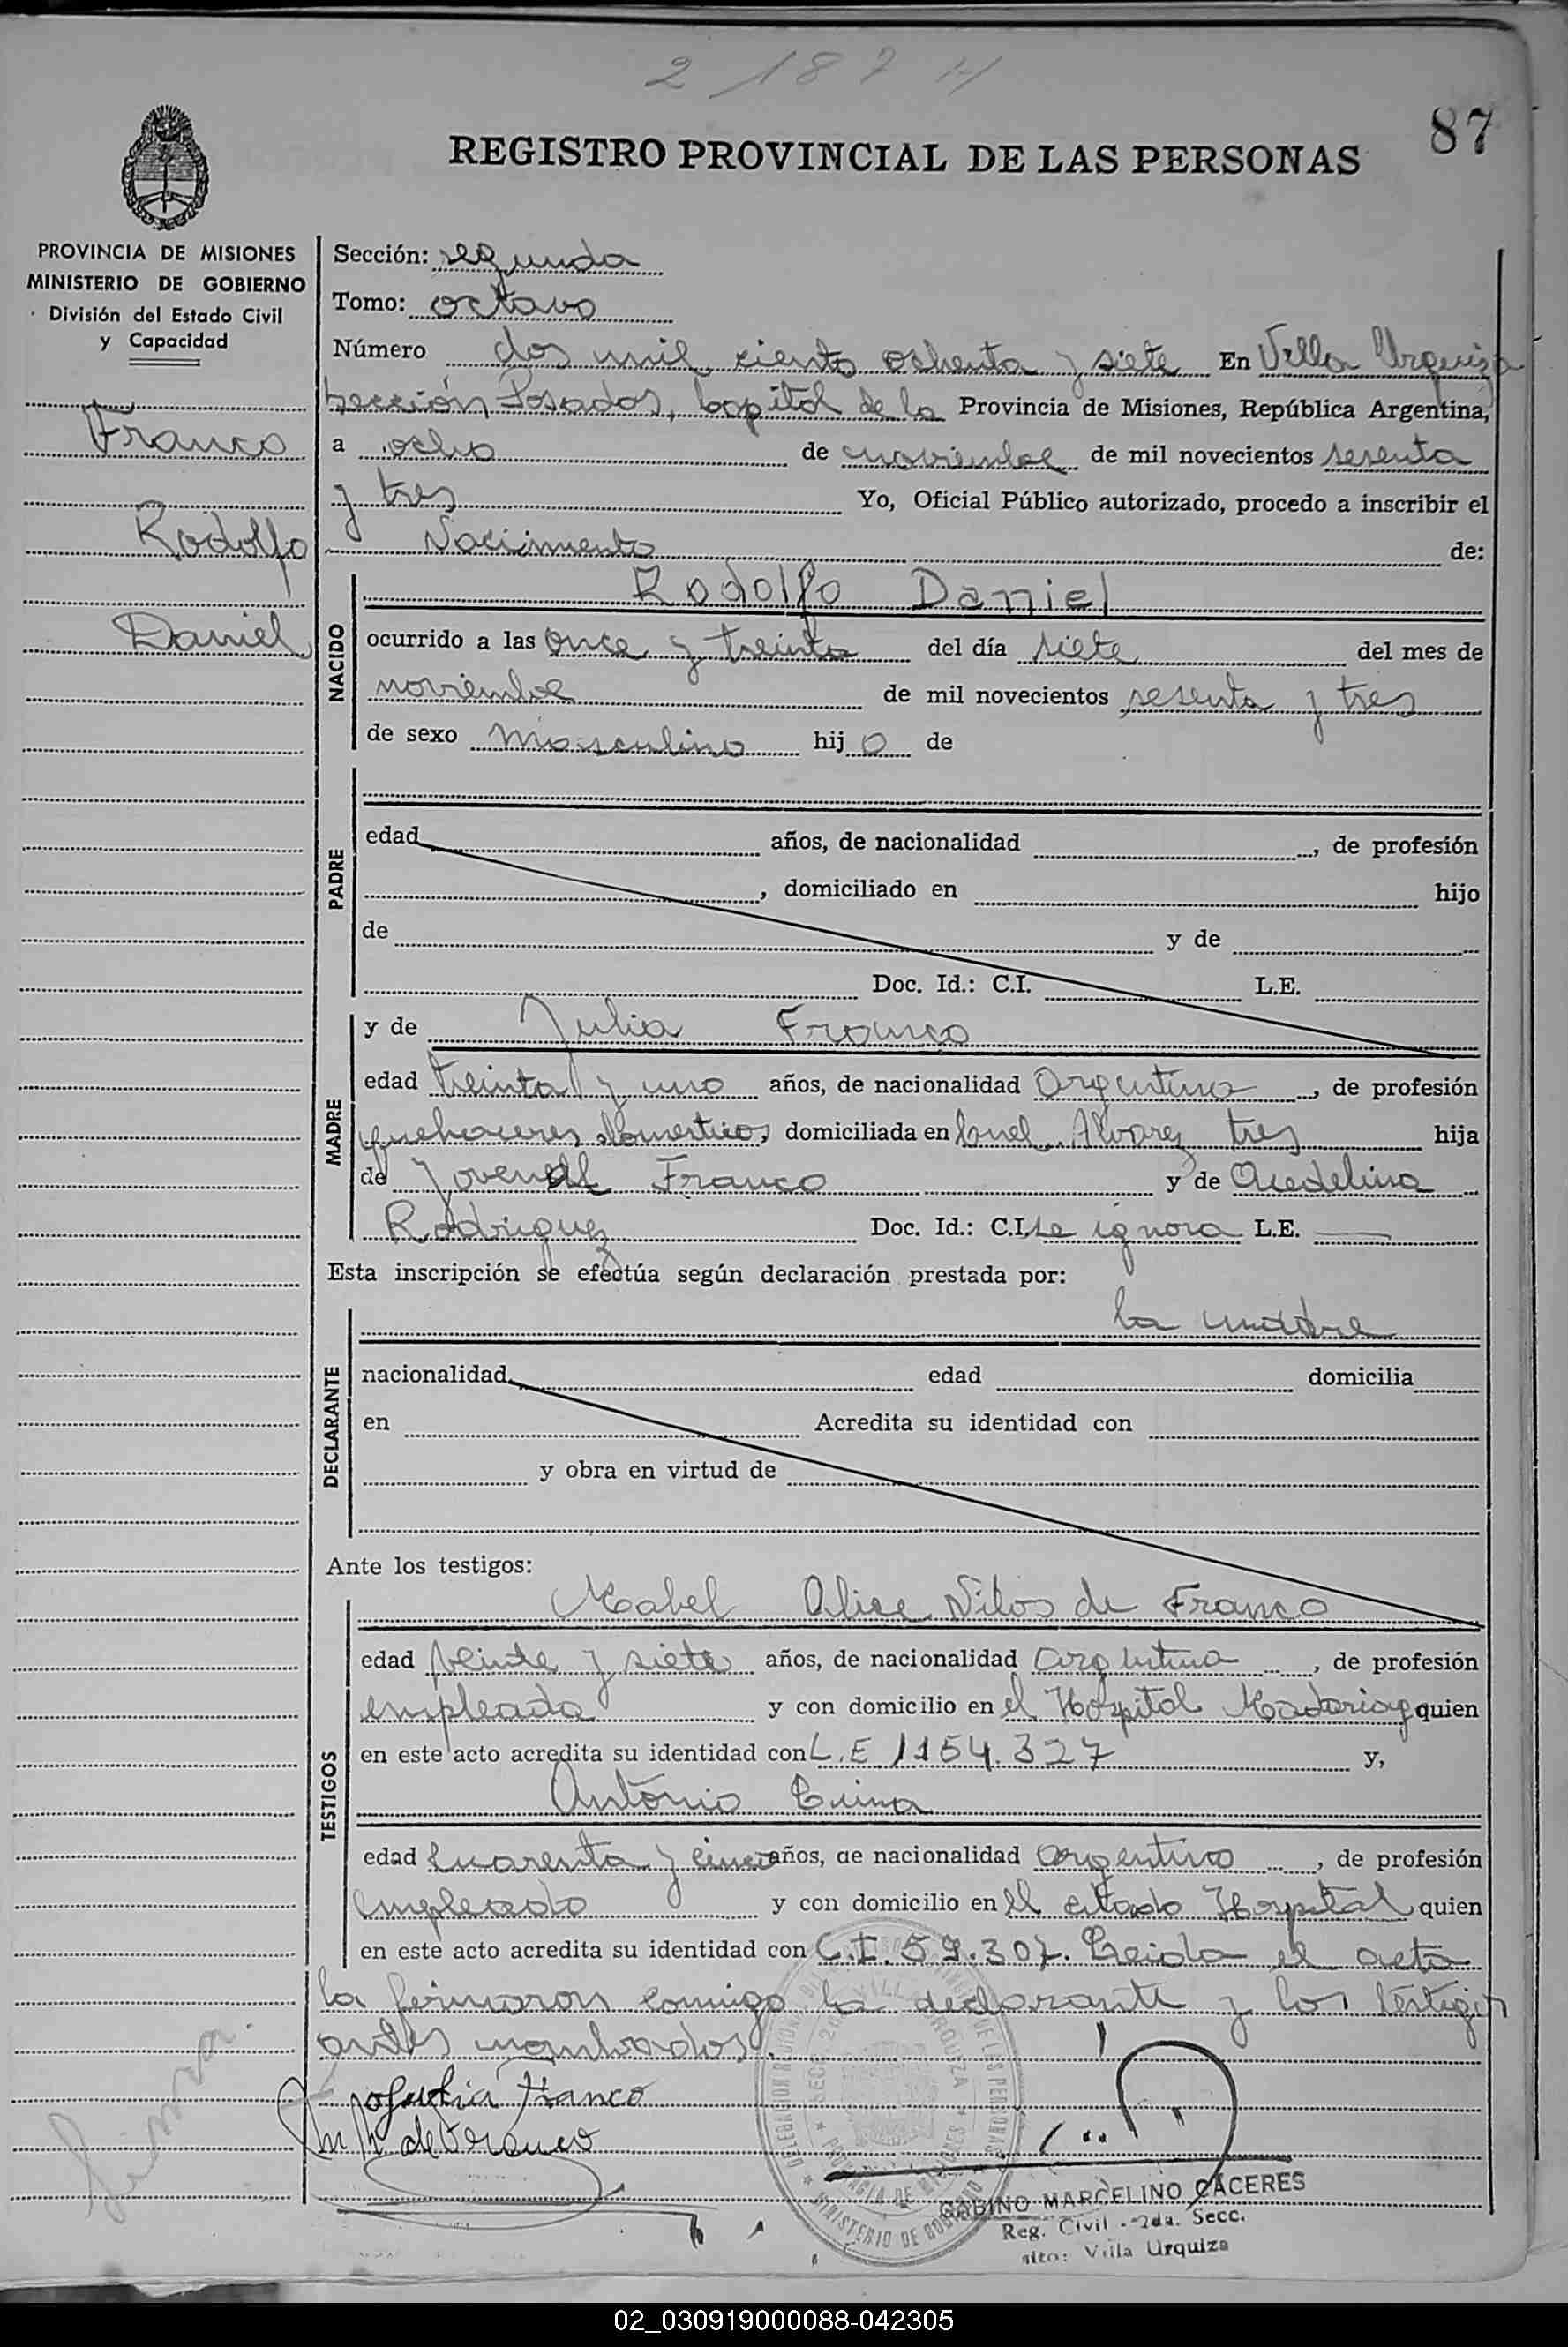 2187
87
REGISTRO PROVINCIAL DE LAS PERSONAS
PROVINCIA DE MISIONES
MINISTERIO DE GOBIERNO
División del Estado Civil
y Capacidad
Franco
Rodolfo
Daniel
Sección: segunda
Tomo: octavo
Número dos mil ciento ochenta y siete En Villa Urquiza
sección Posadas, Capital de la Provincia de Misiones, República Argentina,
a ocho de noviembre de mil novecientos sesenta
y tres Yo, Oficial Público autorizado, procedo a inscribir el
Nacimiento de:
NACIDO
Rodolfo Daniel
ocurrido a las once y treinta del día siete del mes de
noviembre de mil novecientos sesenta y tres
de sexo masculino hijo de
PADRE
edad años, de nacionalidad , de profesión
, domiciliado en hijo
de y de
Doc. Id.: C.I. L.E.
MADRE
y de Julia Franco
edad treinta y uno años, de nacionalidad Argentina , de profesión
quehaceres domesticos, domiciliada en Cnel Alvarez tres hija
de Jovenal Franco y de
Rodriguez Doc. Id.: C.I. se ignora L.E.
Esta inscripción se efectúa según declaración prestada por:
la madre
DECLARANTE
nacionalidad edad domicilia
en Acredita su identidad con
y obra en virtud de
Ante los testigos:
TESTIGOS
Mabel Alice de Franco
edad veinte y siete años, de nacionalidad argentina , de profesión
empleada y con domicilio en el Hospital Madariaga quien
en este acto acredita su identidad con L.E 1154.327 y,
Antonio
edad cuarenta y cinco años, de nacionalidad argentino , de profesión
empleado y con domicilio en el citado Hospital quien
en este acto acredita su identidad con C.I. 59.307. Leida el acta
la firmaron conmigo la declarante y los testigos
antes nombrados.
Julia Franco
de Franco
GABINO MARCELINO CACERES
Reg. Civil - 2da. Secc.
sito: Villa Urquiza
02_030919000088-042305